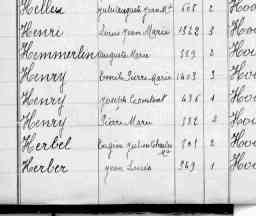 Hellen Jean Mie 608 2 Hoo
Henri Louis Jean Marie 1322 3 Hoo
Hemmerlin Auguste Marie 559 2 Hoo
Henry Emile Pierre Marie 1403 3 Hoo
Henry Joseph Constant 436 1 Hoo
Henry Pierre Marie 382 2 Hoo
Herbel Eugène Julien 2 Hoo
Herber Jean Louis 349 1 Hoo